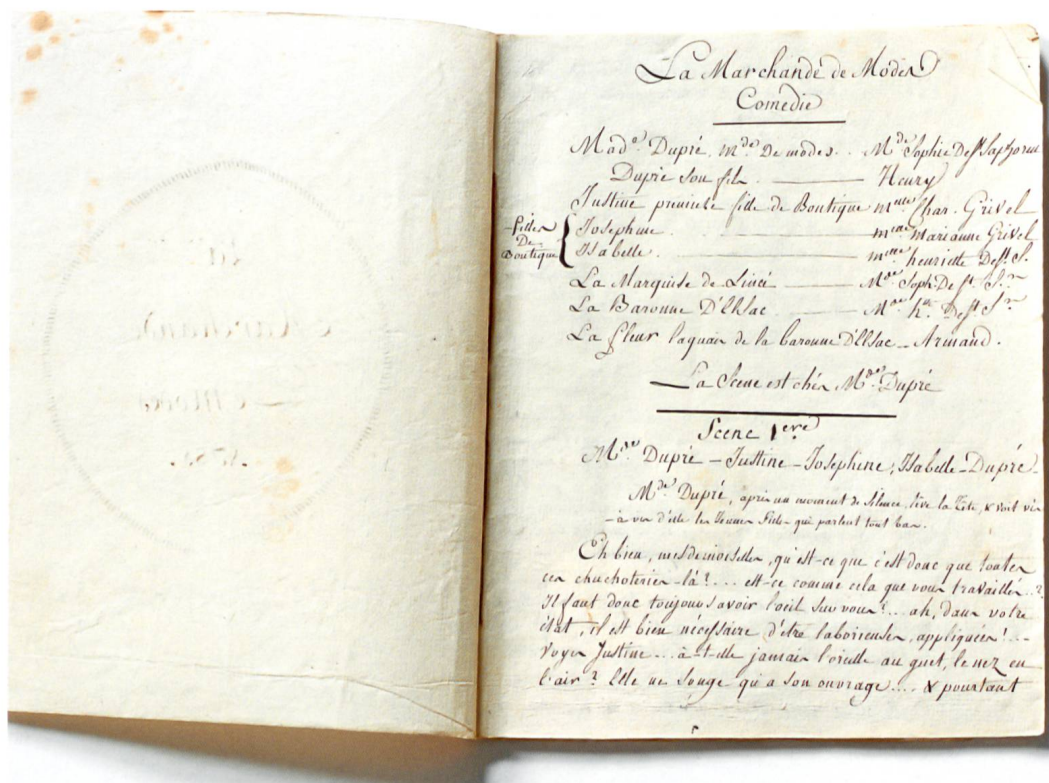 La Marchande de Modes
Comedie
Mad.e Dupré, m.de De modes . . M.de Sophie De St Saphorin
Dupré son fils ——— Henry
Justine premiere fille de Boutique m.lle Char. Grivel
Filles
De
Boutique
Josephine ——— m.lle Marianne Grivel
Isabelle ——— m.lle henriette De St. S.
La Marquise de Lincé ——— M.de Soph. De St. S.n
La Baronne D'Elsac ——— M.de h. De St. S.n
La fleur laquais de la baronne D'Elsac — Armand.
La Scene est chés M.de Dupré
Scene 1ere
M.de Dupré — Justine — Josephine, Isabelle — Dupré —
M.de Dupré, après un moment de Silence, lève la Tête, & voit vis
- à vis d'elle les Jeunes filles qui parlent tout bas.
Eh bien, mesdemoiselles, qu'est-ce que c'est donc que toutes
ces chuchoteries-là? . . . est-ce comme cela que vous travaillés . . ?
Il faut donc toujours avoir l'oeil sur vous! . . . ah, dans votre
état, il est bien nécessaire d'être laborieuses, appliquées! . . .
Voyes Justine . . . à-t-elle jamais l'oreille au guet, le nez en
l'air? Elle ne songe qu'a son ouvrage . . . . & pourtant